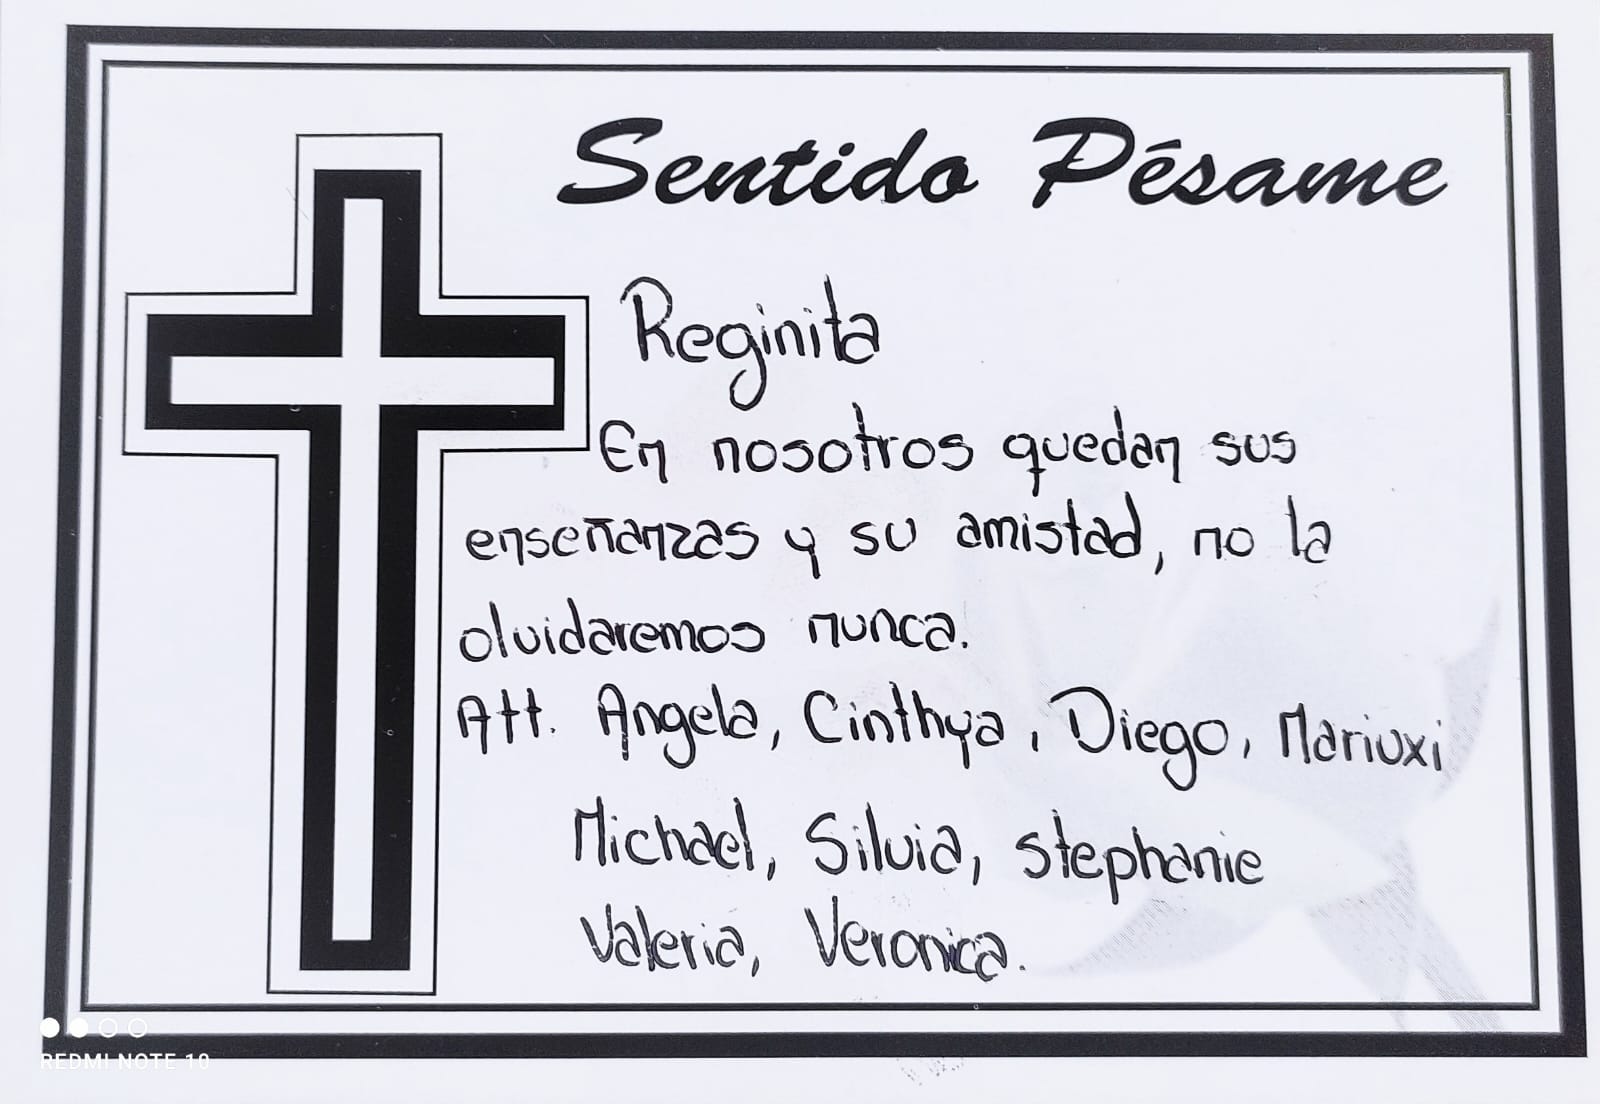 Sentido Pésame
Reginita
En nosotros quedan sus
enseñanzas y su amistad, no la
olvidaremos nunca.
Att. Angela, Cinthya, Diego, Mariuxi
Michael, Silvia, Stephanie
Valeria, Veronica.
REDMI NOTE 10